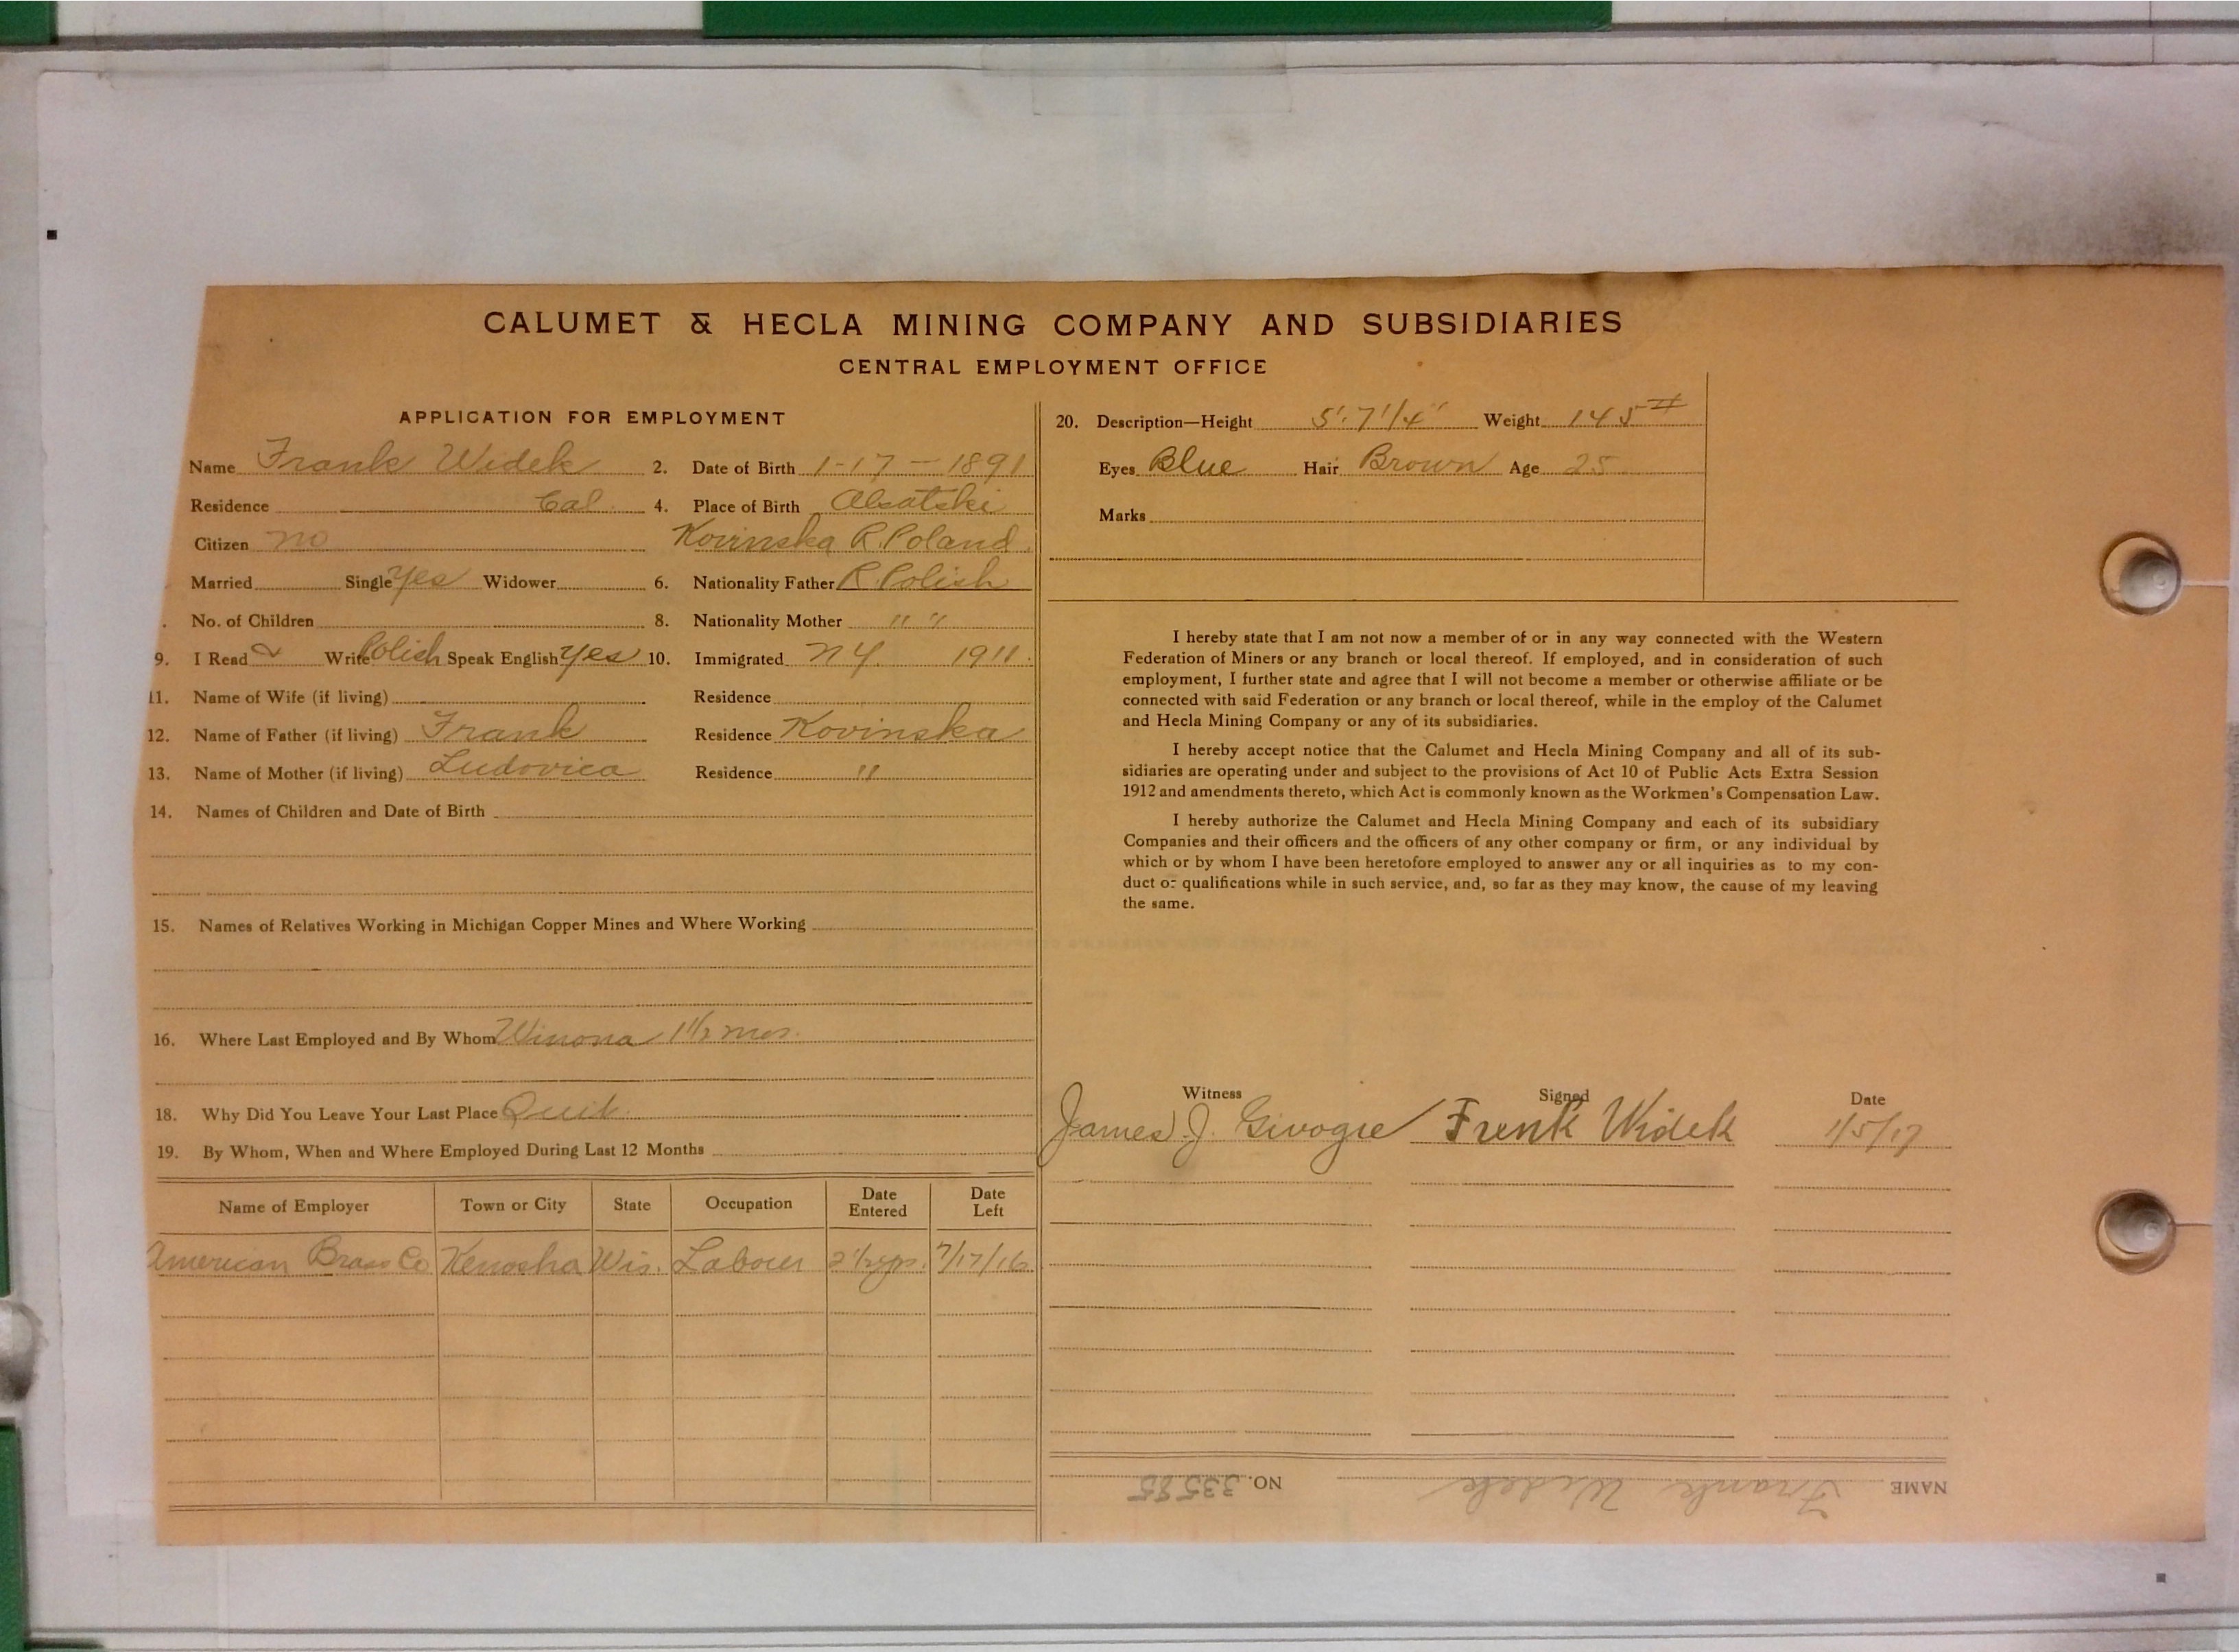 CALUMET & HECLA MINING COMPANY AND SUBSIDIARIES
CENTRAL EMPLOYMENT OFFICE
APPLICATION FOR EMPLOYMENT
Name Frank Widek 2. Date of Birth 1-17-1891
Residence Cal. 4. Place of Birth
Citizen no Kovinska R. Poland
Married Single yes Widower 6. Nationality Father R. Polish
No. of Children 8. Nationality Mother " "
9. I Read Write Polish Speak English yes 10. Immigrated N Y. 1911.
11. Name of Wife (if living) Residence
12. Name of Father (if living) Frank Residence Kovinska
13. Name of Mother (if living) Ludovica Residence "
14. Names of Children and Date of Birth
15. Names of Relatives Working in Michigan Copper Mines and Where Working
16. Where Last Employed and By Whom Winona 1 1/2 mos.
18. Why Did You Leave Your Last Place Quit.
19. By Whom, When and Where Employed During Last 12 Months
Name of Employer Town or City State Occupation Date Entered Date Left
American Brass Co Kenosha Wis. Labour 2 1/2 yrs. 7/17/16
20. Description—Height 5'. 7 1/4" Weight 145#
Eyes Blue Hair Brown Age 25
Marks
I hereby state that I am not now a member of or in any way connected with the Western
Federation of Miners or any branch or local thereof. If employed, and in consideration of such
employment, I further state and agree that I will not become a member or otherwise affiliate or be
connected with said Federation or any branch or local thereof, while in the employ of the Calumet
and Hecla Mining Company or any of its subsidiaries.
I hereby accept notice that the Calumet and Hecla Mining Company and all of its sub-
sidiaries are operating under and subject to the provisions of Act 10 of Public Acts Extra Session
1912 and amendments thereto, which Act is commonly known as the Workmen's Compensation Law.
I hereby authorize the Calumet and Hecla Mining Company and each of its subsidiary
Companies and their officers and the officers of any other company or firm, or any individual by
which or by whom I have been heretofore employed to answer any or all inquiries as to my con-
duct or qualifications while in such service, and, so far as they may know, the cause of my leaving
the same.
Witness Signed Date
James J. Frenk Widek 1/5/17
NAME Frank Widek NO. 33585